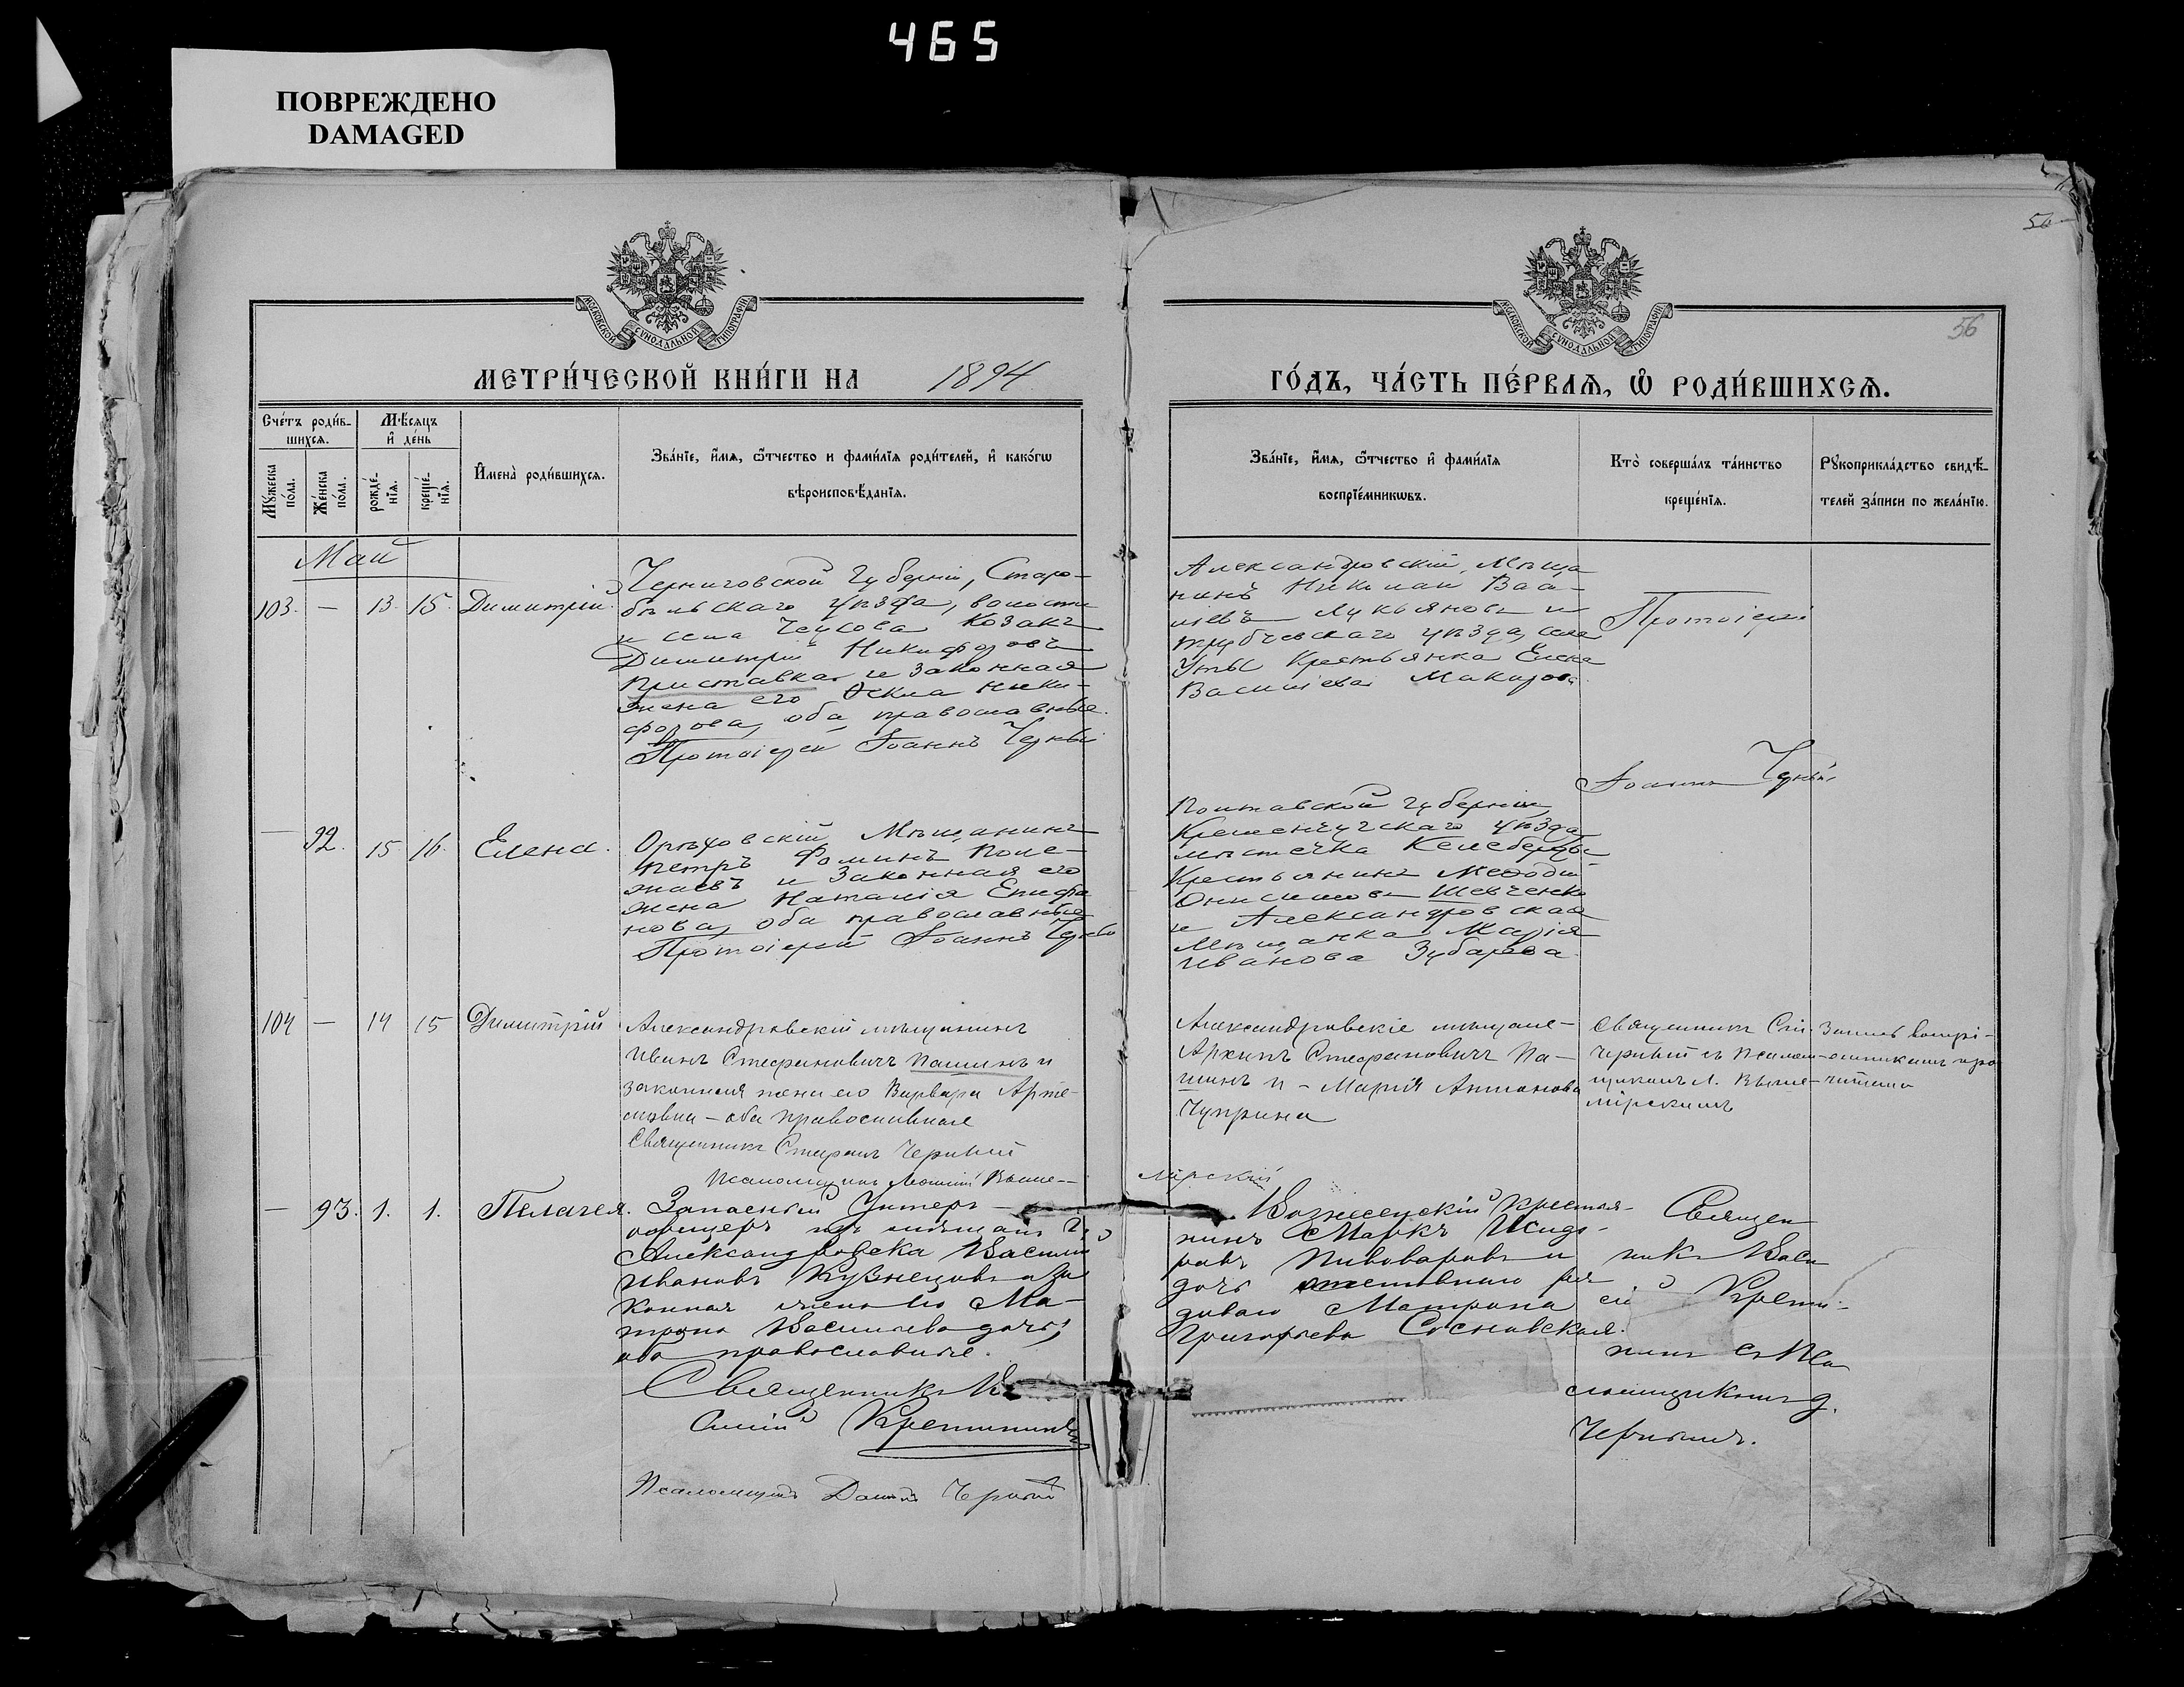 465
ПОВРЕЖДЕНО
DAMAGED
50
56
МОСКОВСКОЙ СѴНОДАЛЬНОЙ ТИПОГРАФІИ
МОСКОВСКОЙ СѴНОДАЛЬНОЙ ТИПОГРАФІИ
МЕТРИ́ЧЕСКОЙ КНИ́ГИ НА 1894
ГО́ДЪ, ЧА́СТЬ ПЕ́РВАѦ, Ѽ РОДИ́ВШИХСѦ.
Сче́тъ роди́в-
шихсѧ.
Мѣ́сѧцъ
и҆ де́нь
Мꙋ́жеска
по́ла.
Же́нска
по́ла.
рожде́-
нїѧ.
креще́-
нїѧ.
И҆мена̀ роди́вшихсѧ.
Зва́нїе, и҆́мѧ, ѻ҆́тчество и фами́лїѧ роди́телей, и҆ како́гѡ
вѣроисповѣ́данїѧ.
Зва́нїе, и҆́мѧ, ѻ҆́тчество и҆ фами́лїѧ
воспрїе́мникѡвъ.
Кто̀ соверша́лъ та́инство
креще́нїѧ.
Рꙋкоприкла́дство свидѣ́-
телей за́писи по жела́нїю.
Май
103. — 13. 15. Димитрій.
Черниговской губерніи, Старо-
бѣльскаго уѣзда, волости
и села Козакъ
Димитрій Никифоровъ
Приставка и законная
жена его Ники-
форова, оба православные.
Протоіерей Іоаннъ Черный
Александровскій Мѣща
нинъ Николай Васи-
ліевъ Лукьяновъ и
Трубчевскаго уѣзда, села
Уты Крестьянка Елена
Василіева Макарова
Протоіерей
Іоаннъ Черный
— 92. 15. 16. Елена.
Орѣховскій Мѣщанинъ
Петръ Фоминъ Поле-
жаевъ и законная его
жена Наталія Епифа
нова, оба православные
Протоіерей Іоаннъ Черный
Полтавской губерніи,
Кременчугскаго уѣзда
мѣстечка Келеберды
Крестьянинъ Меѳодій
Онисимовъ Шевченко
и Александровская
Мѣщанка Марія
Иванова Зубарева
104 — 14 15 Димитрій
Александровскій мѣщанинъ
Иванъ Стефановичъ Пашинъ и
законная жена его Варвара Арте-
мовна — оба православные
Священникъ Стефанъ Черный
Псаломщикъ Выше-
мірскій
Александровскіе мѣщане —
Архипъ Стефановичъ Па-
шинъ и — Марія Антонова
Чуприна
Священникъ Сте.
Черный съ псалом-
щикомъ Л. Выше-
мірскимъ
Запись воспрі-
емникамъ про
читана
— 93. 1. 1. Пелагея.
Запасный Унтеръ —
офицеръ изъ мѣщанъ г.
Александровска Василій
Ивановъ Кузнецовъ и за
конная жена его Ма-
трона Васильева дочь,
оба православные.
Священникъ Ва
силій Кретининъ
Псаломщикъ Даніилъ Черный
Вознесенскій крестья-
нинъ Маркъ Исидо-
ровъ Пивоваровъ и
дочь отставного ря
дового Матрона
Григорьева Сосновская.
Священ
никъ Васи
лій Крети-
нинъ съ Пса
ломщикомъ Д.
Чернымъ.